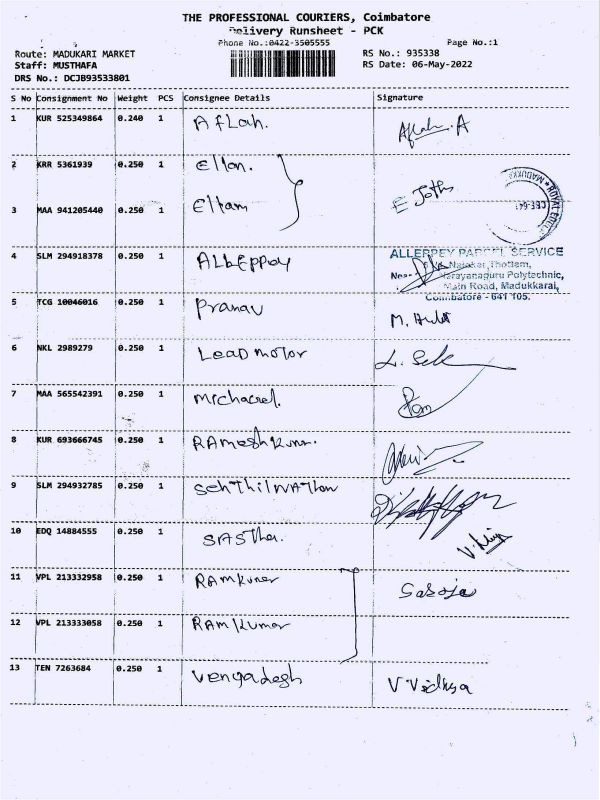 THE PROFESSIONAL COURIERS, Coimbatore
Delivery Runsheet - PCK
Phone No.:0422-3505555 Page No.:1
Route: MADUKARI MARKET RS No.: 935338
Staff: MUSTHAFA RS Date: 06-May-2022
DRS No.: DCJB93533801
S No Consignment No Weight PCS Consignee Details Signature
1 KUR 525349864 0.240 1 Aflah. Aflah. A
2 KRR 5361939 0.250 1 Ellan.
3 MAA 941205440 0.250 1 Eltam E Jothi
4 SLM 294918378 0.250 1 ALLEPPEY
ALLEPPEY PARCEL SERVICE
Naicker Thottam,
Near Narayanaguru Polytechnic,
Main Road, Madukkarai,
Coimbatore - 641 105.
5 TCG 10046016 0.250 1 Pranav
6 NKL 2989279 0.250 1 LEAD motor
7 MAA 565542391 0.250 1 Michael.
8 KUR 693666745 0.250 1 RAmeshkumar.
9 SLM 294932785 0.250 1
10 EDQ 14884555 0.250 1 SASTha.
11 VPL 213332958 0.250 1 RAMKumar Saroja
12 VPL 213333058 0.250 1 RAMKumar
13 TEN 7263684 0.250 1 Vengadesh V Vidhya